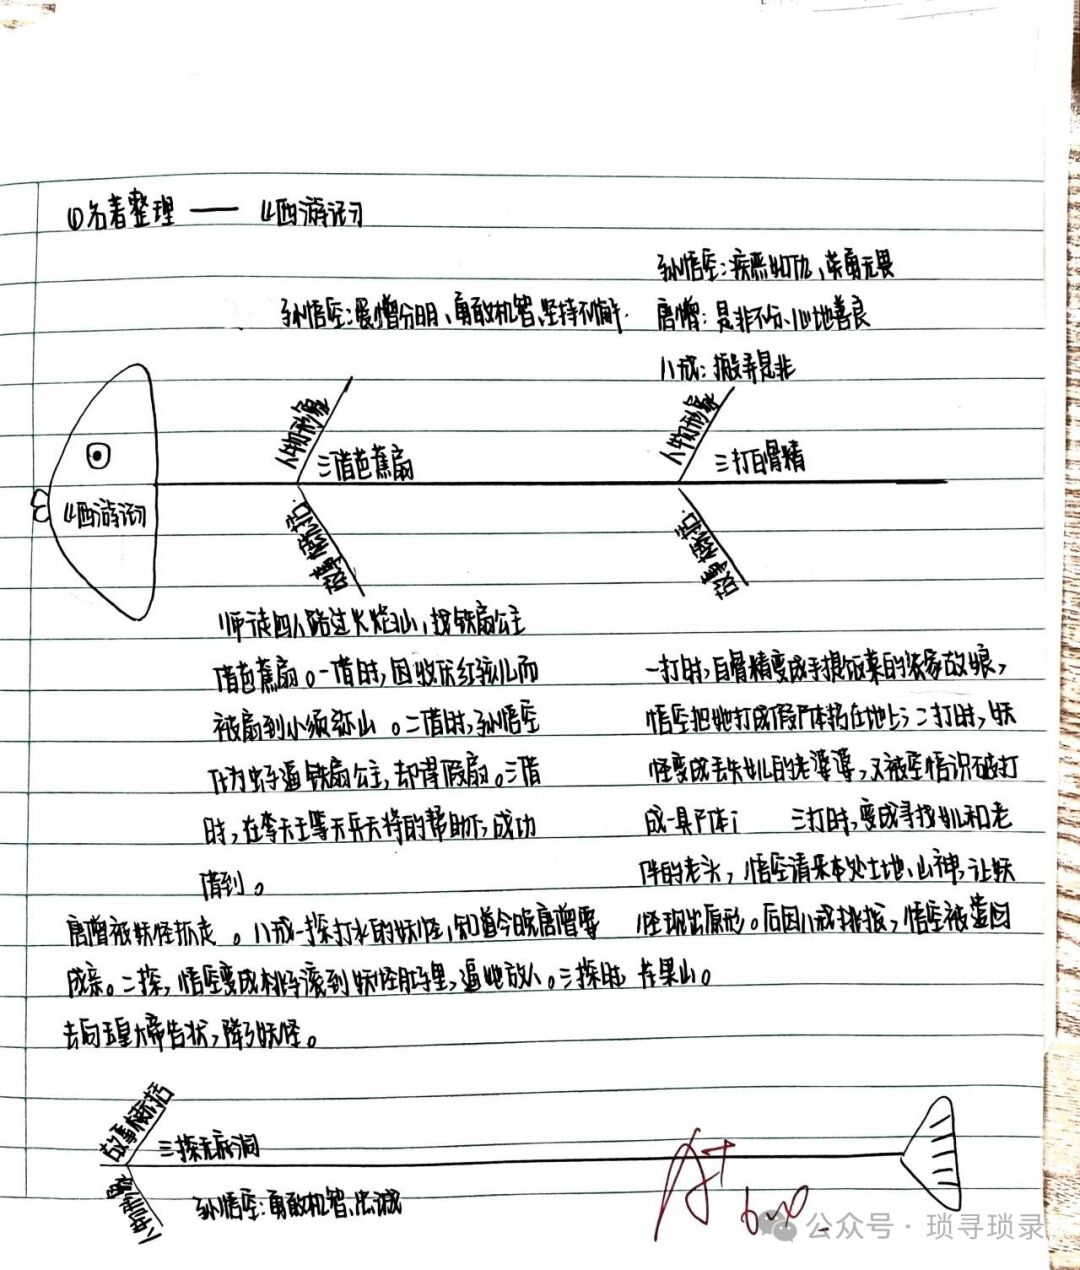 ①名著整理 —— 《西游记》
孙悟空:疾恶如仇、英勇无畏
孙悟空:爱憎分明、勇敢机智、坚持不懈.
唐僧:是非不分、心地善良
八戒:搬弄是非
人物形象
三借芭蕉扇
人物形象
三打白骨精
《西游记》
故事概括
故事概括
师徒四人路过火焰山,找铁扇公主
借芭蕉扇。一借时,因收伏红孩儿而
被扇到小须弥山。二借时,孙悟空
化为虫子逼铁扇公主,却得假扇。三借
时,在李天王等天兵天将的帮助下,成功
借到。
一打时,白骨精变成手提饭菜的农家姑娘,
悟空把她打成假尸体抛在地上;二打时,妖
怪变成丢失女儿的老婆婆,又被空悟识破打
成一具尸体; 三打时,变成寻找女儿和老
伴的老头,悟空请来本处土地、山神,让妖
怪现出原形。后因八戒挑拨,悟空被逐回
花果山。
唐僧被妖怪抓走。八戒一探打水的妖怪,知道今晚唐僧要
成亲。二探,悟空变成桃子滚到妖怪肚子里,逼她放人。三探时
去向玉皇大帝告状,降了妖怪。
故事概括
三探无底洞
人物形象
孙悟空:勇敢机智、忠诚
A+
公众号·琐寻琐录